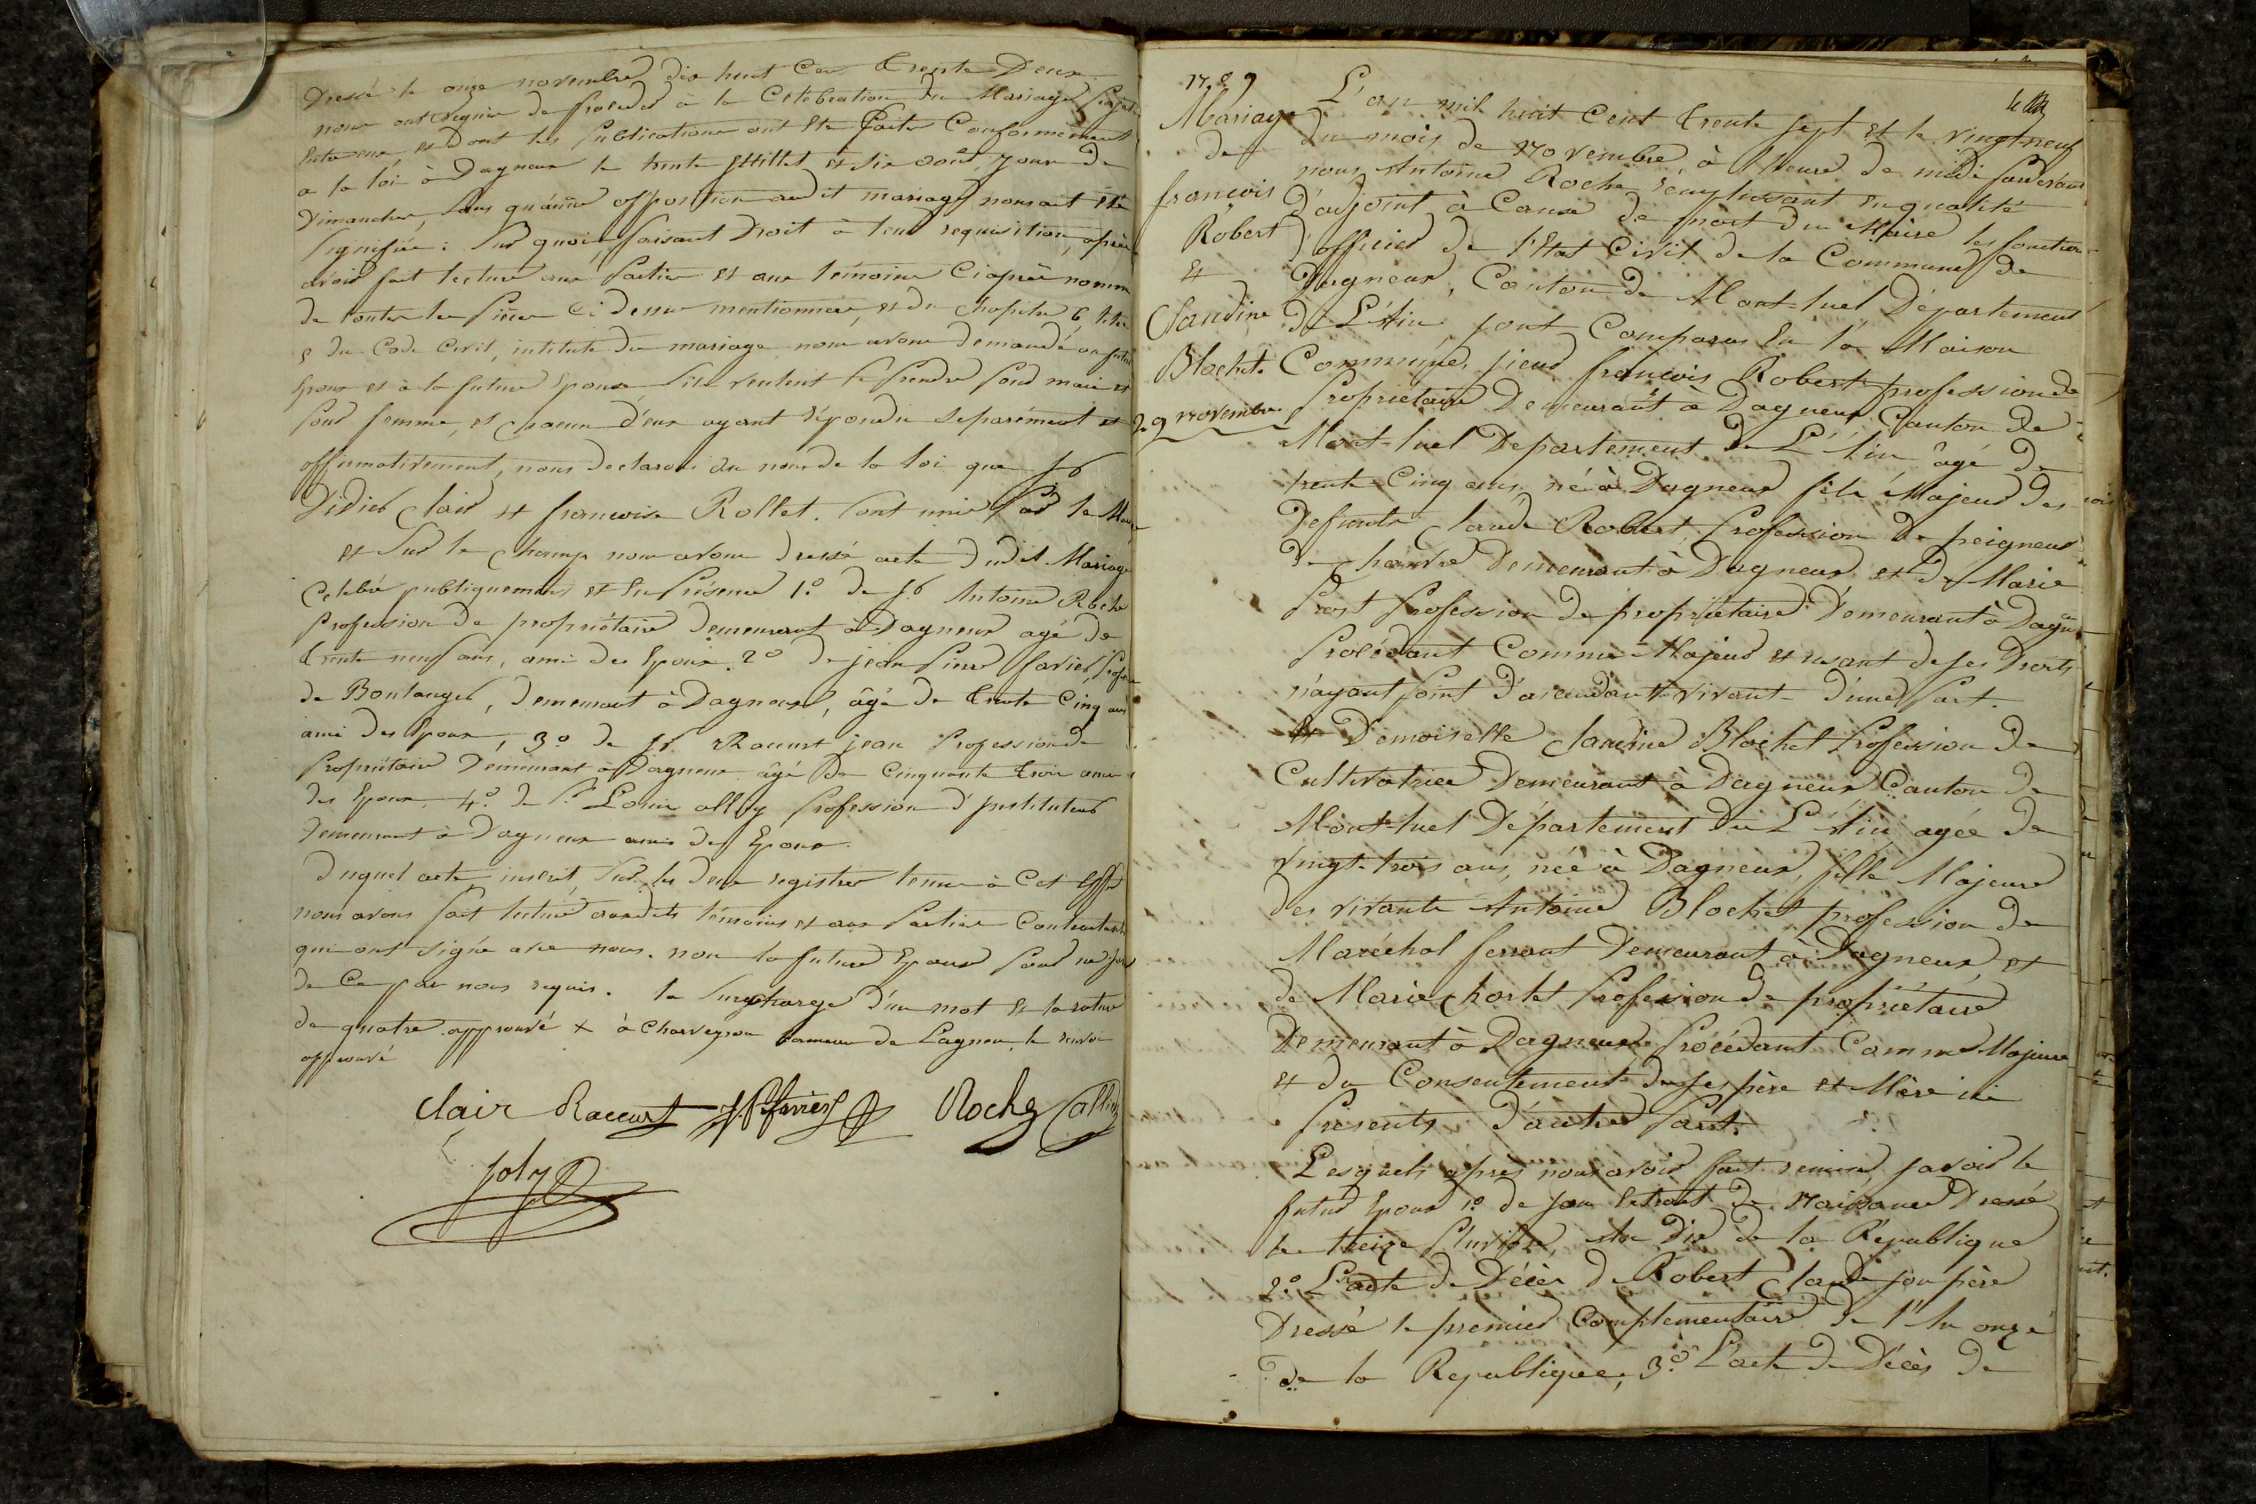 Dressé le onze novembre dix huit Cent Trente Deux.
nous ont requis de proceder à la Celebration du Mariage Projeté
Entre eux et Dont les Publications ont Eté faite Conformement
a la loi à Dagneux le trente Juillet et six août, jour de
Dimanche, Sans qu'aucune opposition audit mariage nous ait été
Signifiée: Sur quoi, faisant Droit à leur requisition, après
avoir fait lecture aux Parties et aux témoins Ci après nommé
de toutes les Pièces Ci dessus mentionnées, et du Chapitre 6, titre
5 du Code Civil, intitulé du mariage nous avons demandé au futur
Epoux et à la future Epouse S'ils veulent se Prendre pour mari et
pour femme, et Chacun d'eux ayant répondu Separément et
affirmativement, nous declarons au nom de la loi que Sr
Didier Clair et francoise Rollet. Sont unis Par le Mariage
et Sur le Champ nous avons dressé acte dudit Mariage
Celebré publiquement et En Présence 1.º de Sr Antoine Roche
Profession de propriétaire demeurant à Dagneux agé de
trente neuf ans, ami des Epoux. 2º de jean Pierre favier, Profession
de Boulanger, demeurant à Dagneux, âgé de trente Cinq ans
ami des Epoux, 3º de Sr Raccurt jean Profession de
Propriétaire Demeurant à Dagneux âgé de Cinquante trois ans
des Epoux. 4º. de Sr Louis alloy Profession d'Instituteur
demeurant à Dagneux ami des Epoux.
Duquel acte inscrit, Sur les deux registres tenus à Cet Effet
nous avons fait lecture auxdits témoins et aux Parties Contractantes
qui ont signé avec nous. non la future Epouse pour ne
de Ce par nous requis. la Surcharge d'un mot et la rature
de quatre approuvé x à Charveyron Commune de Lagnieu, le renvoi
approuvé
Clair Raccurt JP favier Roche alloy
Joly
17.e
Mariage
de
françois
Robert
Et
Claudine
Blochet.
29 novembre
L'an mil huit Cent trente Sept et le vingt-neuf
du mois de Novembre, à l'heure de midi Pardevant
nous Antoine Roche remplissant En qualité
d'adjoint à Cause de mort du Maire les fonctions
d'officier de l'Etat Civil de la Commune de
Dagneux, Canton de Montluel Département
de L'Ain. Sont Comparus En la Maison
Commune, Sieur françois Robert profession de
Propriétaire Demeurant à Dagneux, Canton de
Montluel Departement de L'Ain âgé de
trente-Cinq ans, né à Dagneux fils Majeur des
Defunts Claude Robert, Profession de peigneur
de Chanvre Demeurant à Dagneux et de Marie
Prost Profession de propriétaire Demeurant à Dagneux
Procédant Comme Majeur et usant de ses Droits
n'ayant Point d'ascendants vivant d'une Part.
Et Demoiselle Claudine Blochet Profession de
Cultivatrice Demeurant à Dagneux Canton de
Montluel Département De L'Ain agée de
vingt-trois ans, née à Dagneux, fille Majeure
des vivants Antoine Blochet profession de
Maréchal ferrant Demeurant à Dagneux, et
de Marie Chortet Profession de propriétaire
Demeurant à Dagneux Procédant Comme Majeure
et du Consentement de ses père et Mère ici
Présents D'autre Part.
Lesquels après nous avoir fait remise, savoir le
futur Epoux 1.º de Son Extrait de Naissance Dressé
le treize Pluviose, An Dix de la République
2.º L'acte de Décès de Robert Claude Son père
Dressé le premier Complementaire de l'An onze
de la Republique, 3.º L'acte de Décès de